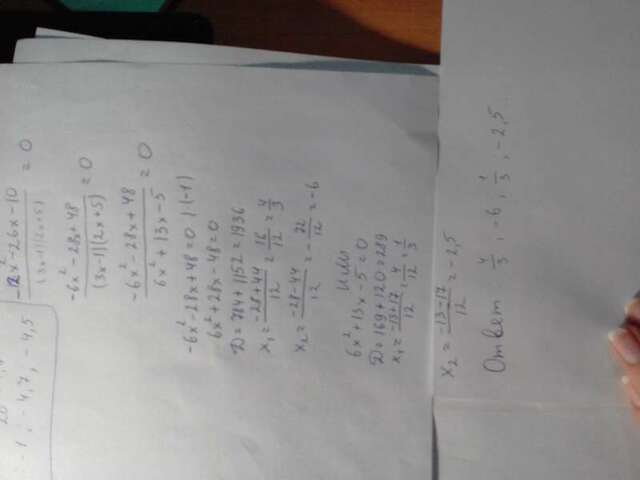 -1; -4,7, -4,5
-12x²-26x-10 / (3x-1)(2x+5) = 0
-6x²-28x+48 / (3x-1)(2x+5) = 0
-6x²-28x+48 / 6x²+13x-5 = 0
-6x²-28x+48=0 |·(-1)
6x²+28x-48=0
D=784+1152=1936
x₁= -28+44 / 12 = 16/12 = 4/3
x₂= -28-44 / 12 = - 72/12 = -6
или
6x²+13x-5=0
D=169+120=289
x₁= -13+17 / 12 = 4/12 = 1/3
x₂ = -13-17 / 12 = -2,5
Ответ 4/3, -6, 1/3, -2,5.